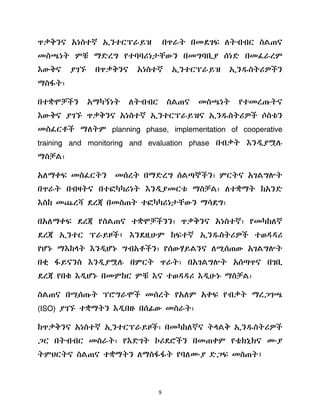 ጥቃቅንና አነስተኛ ኢንተርፕራይዝ በጥራት በመደገፍ ለትብብር ስልጠና
መስጫነት ምቹ ማድረግ የተባባሪነታቸውን በመገባቢያ ሰነድ በመፈራረም
እውቅና ያገኙ በጥቃቅንና አነስተኛ ኢንተርፕራይዝ ኢንዱስትሪዎችን
ማስፋት፣
በተቋሞቻችን አማካኝነት ለትብብር ስልጠና መስጫነት የተመረጡትና
እውቅና ያገኙ ጥቃቅንና አነስተኛ ኢንተርፕራይዝና ኢንዱስትሪዎች ሶስቱን
መስፈርቶች ማለትም planning phase, implementation of cooperative
training and monitoring and evaluation phase በብቃት እንዲያሟሉ
ማስቻል፣
አለማቀፍ መስፈርትን መሰረት በማድረግ ሰልጣኞችን፣ ምርትና አገልግሎት
በጥራት በብዛትና በተፎካካሪነት እንዲያመርቱ ማስቻል፣ ለተቋማት ከአንድ
እስከ መጨረሻ ደረጃ በመስጠት ተፎካካሪነታቸውን ማሳደግ፣
በአለማቀፍ ደረጃ የስልጠና ተቋሞቻንንን፣ ጥቃቅንና አነስተኛ፣ የመካከለኛ
ደረጃ ኢንተር ፕራይዞች፣ እንደዚሁም ከፍተኛ ኢንዱስትሪዎች ተወዳዳሪ
የሆኑ ማእከላት እንዲሆኑ ግብአቶችን፣ የሰውሃይልንና ለሚሰጠው አገልግሎት
በቂ ፋይናንስ እንዲያሟሉ በምርት ጥራት፣ በአገልግሎት አሰጣጥና በገቢ
ደረጃ የበቁ እዲሆኑ በመምከር ምቹ እና ተወዳዳሪ እዲሁኑ ማስቻል፣
ስልጠና በሚሰጡት ፕሮግራሞች መሰረት የአለም አቀፍ የብቃት ማረጋገጫ
(ISO) ያገኙ ተቋማትን እዲበዙ በሰፊው መስራት፣
ከጥቃቅንና አነስተኛ ኢንተርፕራይዞች፣ በመካከለኛና ትላልት ኢንዱስትሪዎች
ጋር በትብብር መስራት፣ የእድገት ኮሪደሮችን በመጠቀም የቴክኒክና ሙያ
ትምህርትና ስልጠና ተቋማትን ለማስፋፋት የባለሙያ ድጋፍ መስጠት፣
9